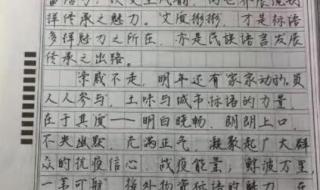 样传承之魅力。文质彬彬，才是标语
多样魅力之所在，亦是民族语言发展
传承之出路。
不走，明年还有家家动的员
人人参与，土味与城市标语的力量，
在于其度——明白晓畅，朗朗上口，
不失幽默，充满正气，凝聚起广大群
众的抗疫信心，战疫能量，鲜波万里，
一苇可航